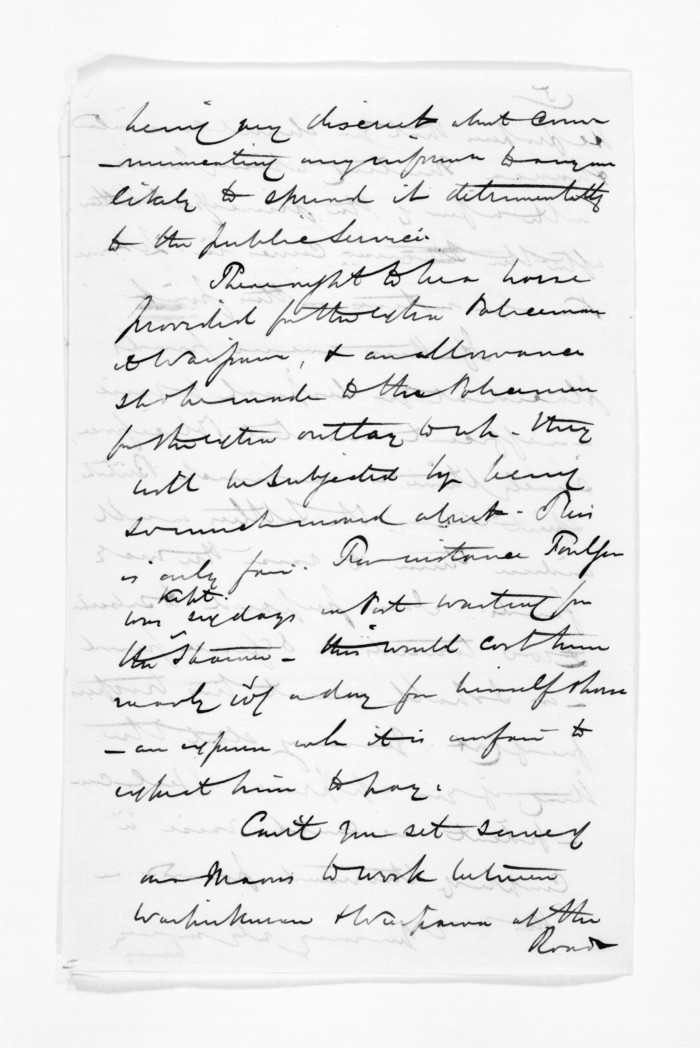 being very discreet about com
-municating any information to anyone
likely to spread it detrimentally
to the public service.
There ought to be a horse
provided for the extra Policeman
at Waipawa, & an allowance
shd be made to the Policemen
for the extra outlay to wh. they
will be subjected by being
so much moved about. This
is only fair. For instance
was kept six days in Port waiting for
the Steamer - this would cost him
nearly 10/ a day for himself & horse
- an expense wh it is unfair to
expect him to pay.
Can't you set some of
our Maoris to work between
Waipukurau & Waipawa at the
Road